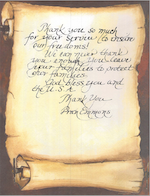 Thank you so much
for your service to insure
our freedoms!
We can never thank
you enough. You leave
your families to protect
our families.
God bless you and
the U.S.A.
Thank You
Ann Emmons